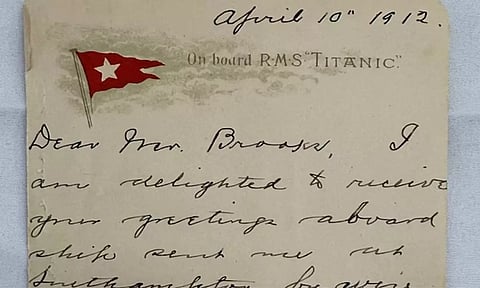 April 10" 1912.
On board R.M.S. "TITANIC".
Dear Mr. Brooks, I
am delighted to receive
your greetings aboard
ship sent me at
Southampton by wire